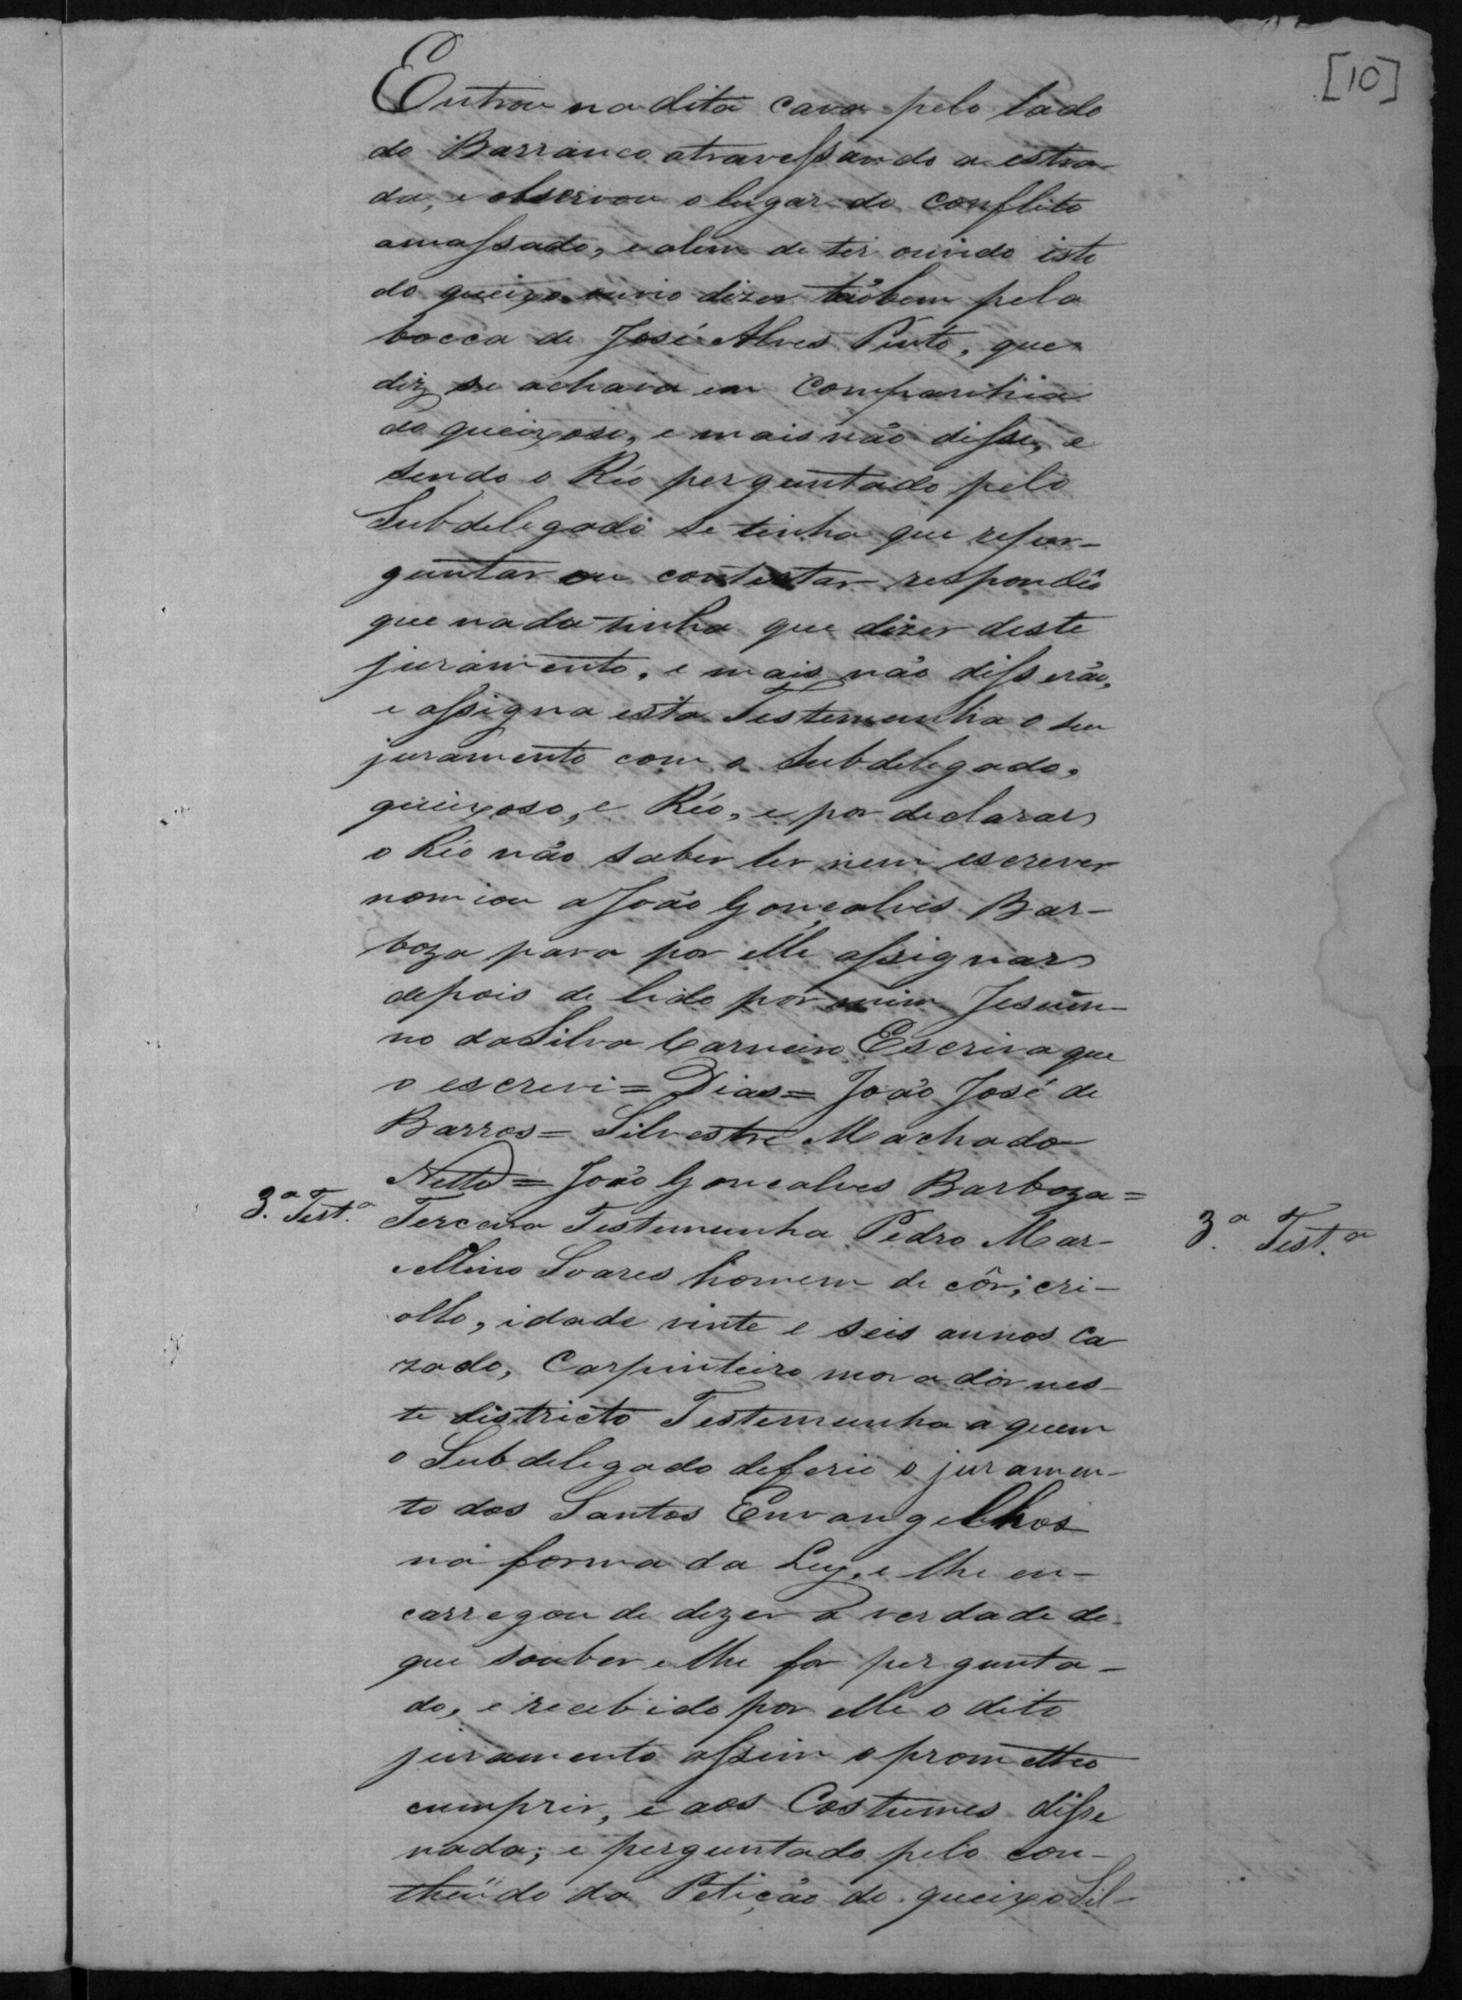 [10]
Entrou na dita cava pelo lado
do Barranco atravessando a estra
da, e observou o lugar do conflito
amassado, e alem de ter ouvido isto
do queixo ouvio dizer tãobem pela
bocca de José Alves Pinto, que
diz se achava em Companhia
do queixoso, e mais não disse, e
sendo o Réo perguntado pelo
Subdelegado se tinha que reper-
guntar ou contestar respondêo
que nada tinha que dizer deste
juramento, e mais não disserão,
e assigna esta Testemunha o seu
juramento com o Subdelegado,
queixoso, e Réo, e por declarar
o Réo não saber ler nem escrever
nomiou a João Gonçalves Bar-
boza para por elle assignar
depois de lido por mim Jesuin-
no da Silva Carneiro Escriva que
o escrevi = Dias = João José de
Barros = Silvestre Machado
Netto = João Goncalves Barboza =
3.ª Test.ª
Terceira Testemunha Pedro Mar-
3.ª Test.ª
cellino Soares homem de côr, cri-
ollo, idade vinte e seis annos Ca
zado, Carpinteiro moradôr nes-
te districto Testemunha a quem
o Subdelegado deferio o juramen-
to dos Santos Envangelhos
na forma da Ley, e lhe en-
carregou de dizer a verdade do
que souber e lhe for pergunta-
do, e recebido por elle o dito
juramento assim o prometteo
cumprir, e aos Costumes disse
nada; e perguntado pelo con-
theüdo da Petição de queixa Sil-